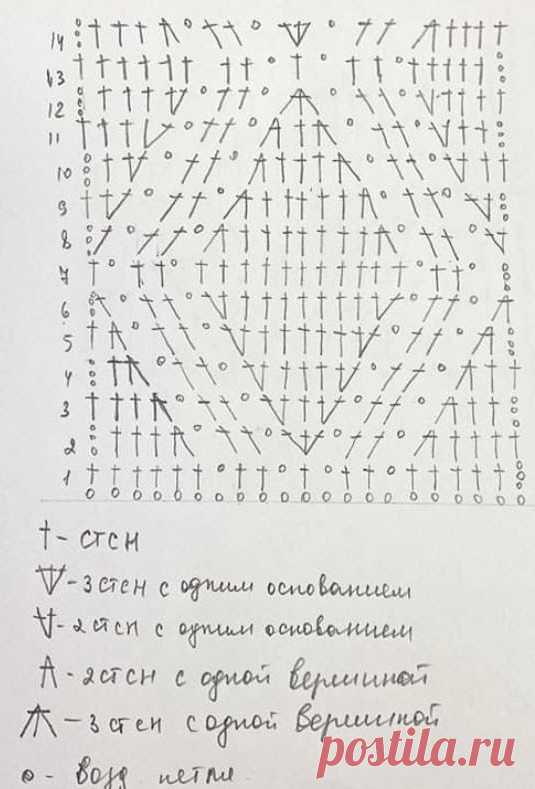 14
13
12
11
10
9
8
7
6
5
4
3
2
1
- стсн
- 3 стсн с одним основанием
- 2 стсн с одним основанием
- 2 стсн с одной вершиной
- 3 стсн с одной вершиной
- возд петля
postila.ru